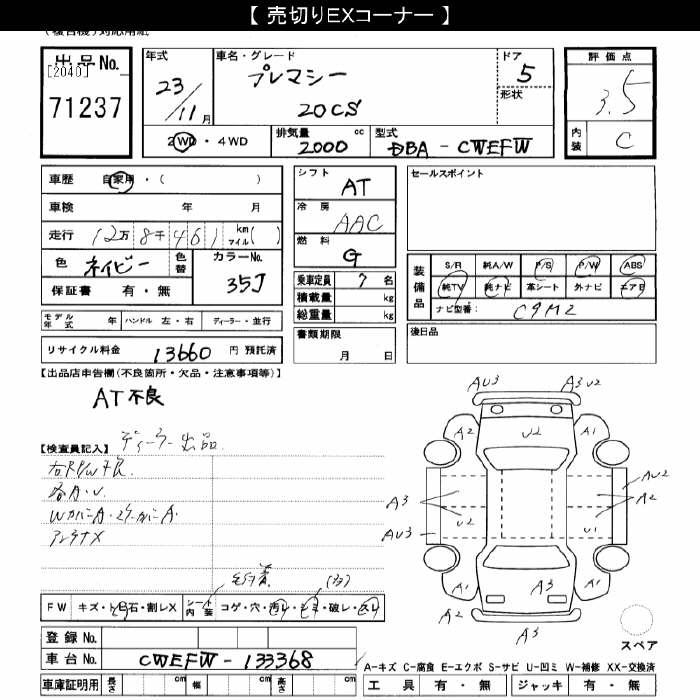 【 売切りEXコーナー 】
出品No.
[2040]
71237
年式
23/11月
車名・グレード
プレマシー
20CS
ドア
5
形状
評価点
3.5
内装
C
2WD・4WD
排気量 cc
2000
型式
DBA - CWEFW
車歴 自家用・( )
車検 年 月
走行 12万8千461 km マイル( )
色 ネイビー
色替
カラーNo.
35J
保証書 有・無
シフト
AT
冷房
AAC
燃料
G
乗車定員 7名
積載量 kg
総重量 kg
セールスポイント
装備品
S/R 純A/W P/S P/W ABS
純TV 純ナビ 革シート 外ナビ エアB
ナビ型番: C9M2
モデル年式 年 ハンドル 左・右 ディーラー・並行
リサイクル料金 13660 円 預託済
書類期限
月 日
後日品
【出品店申告欄(不良箇所・欠品・注意事項等)】
AT不良
【検査員記入】 ディーラー出品
右RP/W不良.
各A・U.
アンテナX
FW キズ・トビ石・割レX シート内装 コゲ・穴・汚レ・シミ・破レ・スレ
登録No.
車台No. CWEFW-133368
車庫証明用 長さ cm 幅 cm 高さ cm
AU3
A3
U2
A2
U2
A1
AU2
A2
A3
AU3
U2
U1
A1
A1
A3
A1
A2
A3
スペア
A−キズ C−腐食 E−エクボ S−サビ U−凹ミ W−補修 XX−交換済
工具 有・無 ジャッキ 有・無